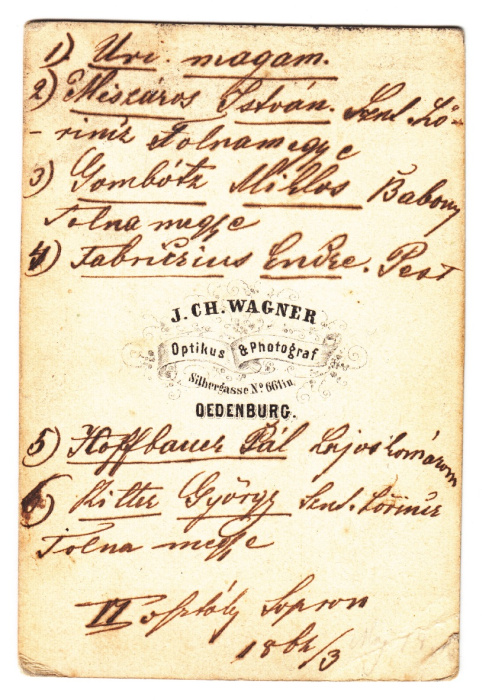 1) Uri. magam.
2) Mészáros István. Szent.Lő-
-rincz Tolnamegye
3) Gombótz Miklos Babony
Tolna megye
4) Fabriczius Endre. Pest
J. CH. WAGNER
Optikus & Photograf
Silbergasse No. 66
OEDENBURG.
5) Hoffbauer Pál Lajoskomárom
6) Ritter György Szent. Lörincz
Tolna megye
osztály Sopron
/3